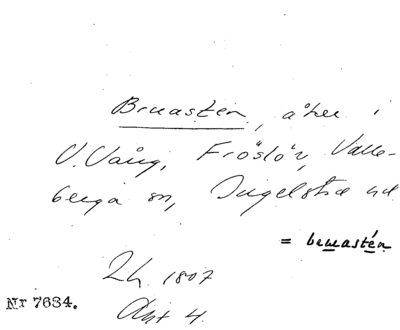 Bruasten, åker i
V. Vång, Fröslöv, Valle-
berga sn, Ingelstad hd
= bruastén
Lh. 1807
Akt 4.
Nr 7634.